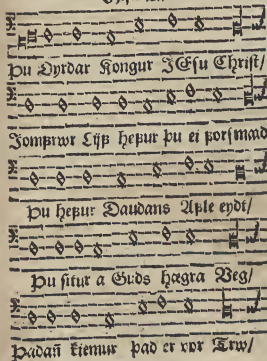 Þu Dyrdar Kongur JEsu Christ/
Jomfrwr Lijf hefur þu ei forsmad
Þu hefur Daudans Afle eydt/
Þu situr a Guds hægra Veg/
Þadañ kiemur þad er vor Trw/